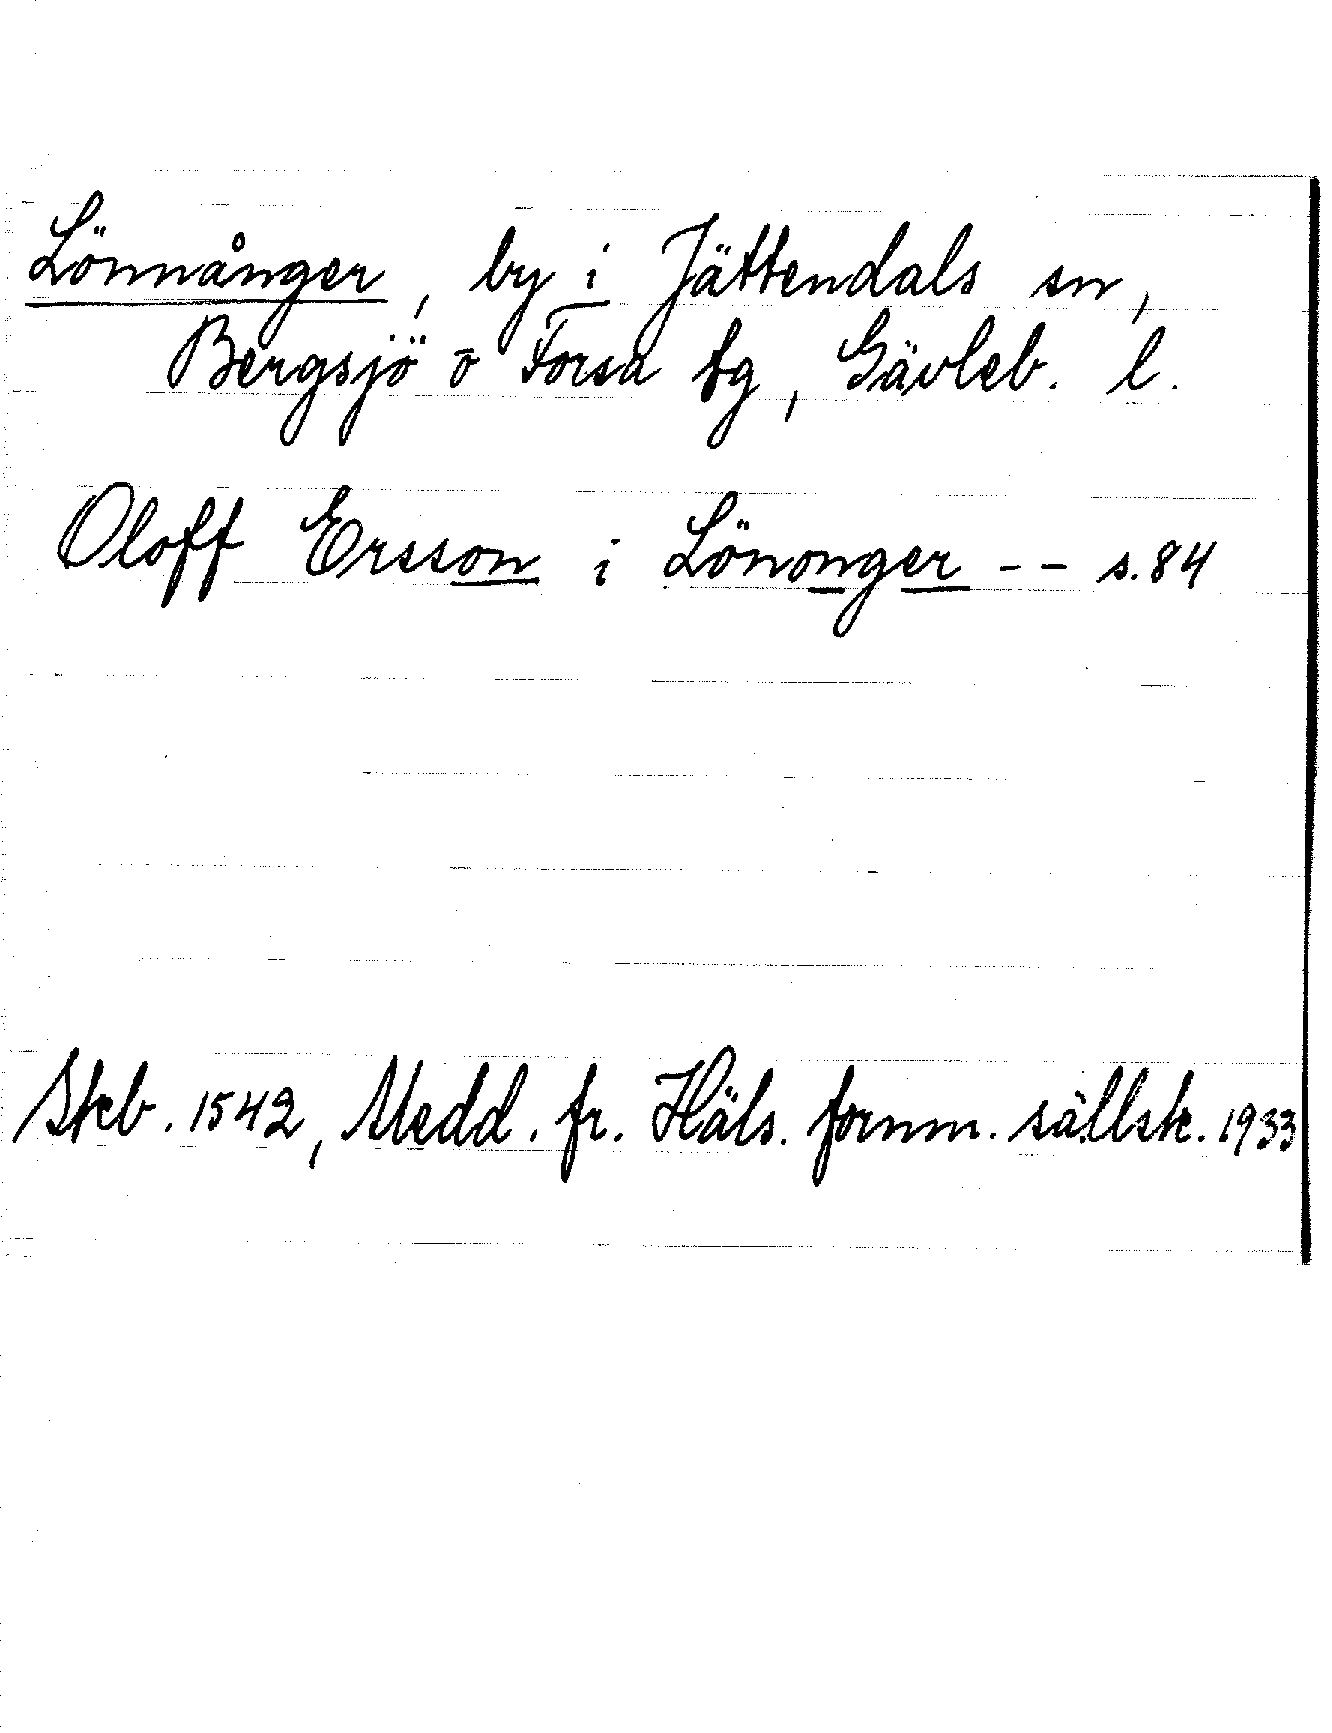 Lönnånger, by i Jättendals sn,
Bergsjö o Forsa tg, Gävleb. l.
Oloff Ersson i Lönonger -- s. 84
Skb. 1542, Medd. fr. Häls. fornm. sällsk. 1933